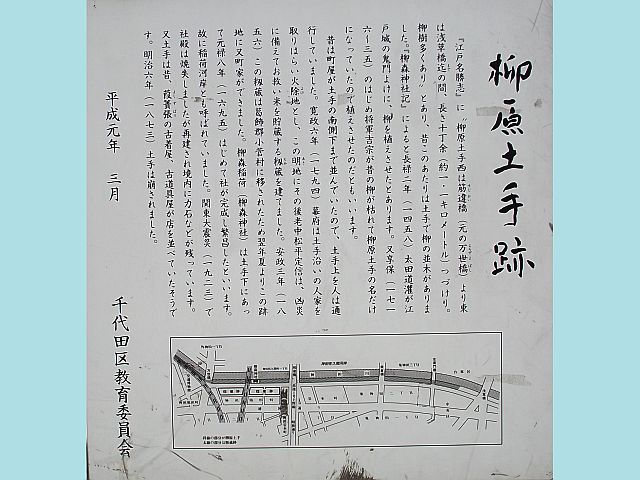 柳原土手跡
『江戸名勝志』に「柳原土手西は筋違橋（元の万世橋）より東
は浅草橋迄の間、長さ十丁余（約一・一キロメートル）つづけり。
柳樹多くあり」とあり、昔このあたりは土手で柳の並木がありま
した。『柳森神社記』によると長禄二年（一四五八）太田道灌が江
戸城の鬼門よけに、柳を植えさせたとあります。又享保（一七一
六〜三五）のはじめ将軍吉宗が昔の柳が枯れて柳原土手の名だけ
になっていたので植えさせたのだともいいます。
昔は町屋が土手の南側下まで並んでいたので、土手上を人は通
行していました。寛政六年（一七九四）幕府は土手沿いの人家を
取りはらい火除地とし、この明地にその後老中松平定信は、凶災
に備えてお救い米を貯蔵する籾蔵を建てました。安政三年（一八
五六）この籾蔵は葛飾郡小菅村に移されたため翌年夏よりこの跡
地に又町家ができました。柳森稲荷（柳森神社）は土手下にあっ
て元禄八年（一六九五）はじめて社が完成し繁昌したといいます。
故に稲荷河岸とも呼ばれていました。関東大震災（一九二三）で
社殿は焼失しましたが再建され境内に力石などが残っています。
又土手は昔、葭簀張の古着屋、古道具屋が店を並べていたそうで
す。明治六年（一八七三）土手は崩されました。
平成元年 三月
千代田区教育委員会